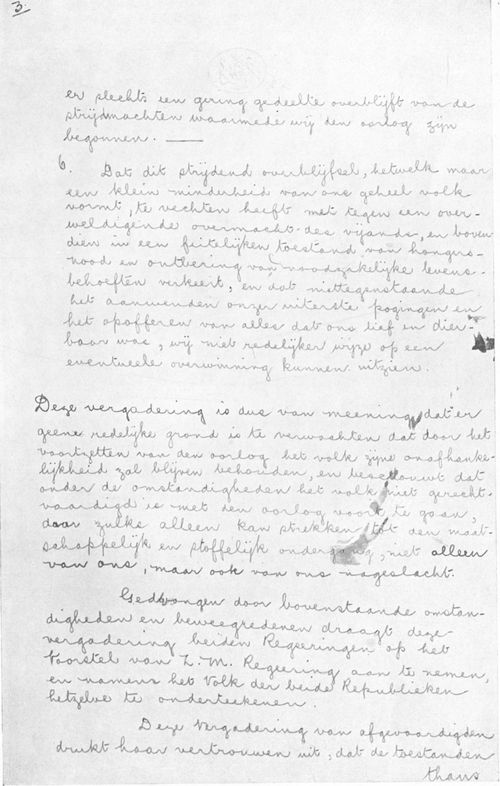 3.
er slechts een gering gedeelte overblijft van de
strijdmachten waarmede wij den oorlog zijn
begonnen. —
6. Dat dit strijdend overblijfsel, hetwelk maar
een klein minderheid van ons geheel volk
vormt, te vechten heeft met tegen een over-
weldigende overmacht des vijands, en boven
dien in een feitelijken toestand van hongers-
nood en ontbering van noodzakelijke levens-
behoeften verkeert, en dat niettegenstaande
het aanwenden onzer uiterste pogingen en
het opofferen van alles dat ons lief en dier-
baar was, wij niet redelijker wijze op een
eventueele overwinning kunnen uitzien.
Deze vergadering is dus van meening dat er
geene redelijke grond is te verwachten dat door het
voortzetten van den oorlog het volk zijne onafhanke-
lijkheid zal blijven behouden, en beschouwt dat
onder de omstandigheden het volk niet gerecht-
vaardigd is met den oorlog voort te gaan,
daar zulks alleen kan strekken tot den maat-
schappelijk en stoffelijk ondergang, niet alleen
van ons, maar ook van ons nageslacht.
Gedwongen door bovenstaande omstan-
digheden en beweegredenen draagt deze
vergadering beiden Regeeringen op het
Voorstel van Z. M. Regeering aan te nemen,
en namens het Volk der beide Republieken
hetzelve te onderteekenen.
Deze Vergadering van afgevaardigden
drukt haar vertrouwen uit, dat de toestanden
thans